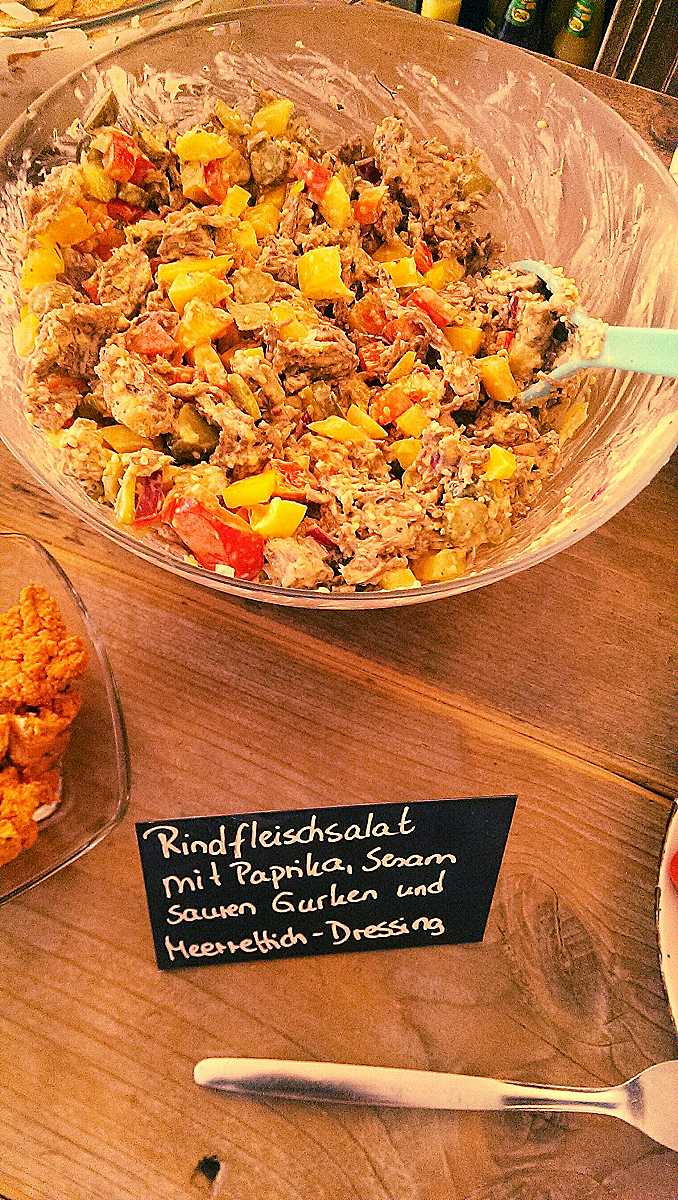 Rindfleischsalat
mit Paprika, Sesam
sauren Gurken und
Meerrettich-Dressing